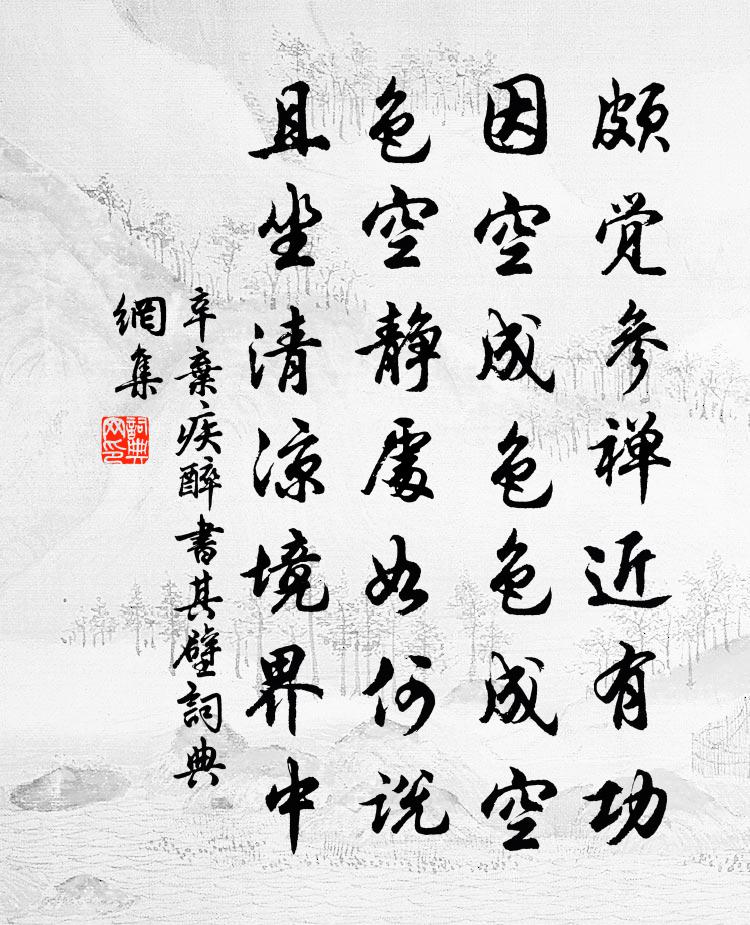 颇觉参禅近有功
因空成色色成空
色空静處如何说
且坐清凉境界中
辛棄疾醉書其壁詞典
網集
詞典
网印